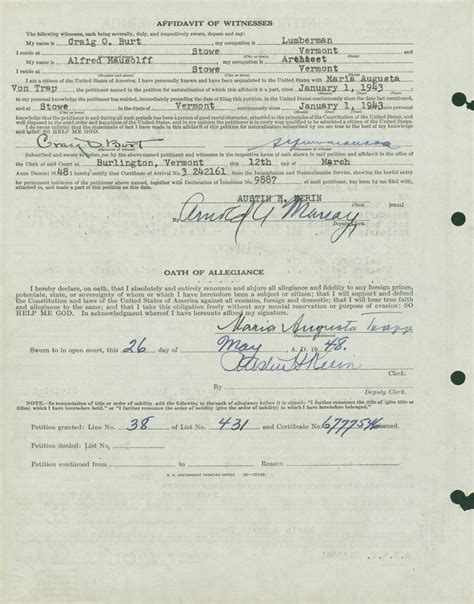 AFFIDAVIT OF WITNESSES
The following witnesses, each being severally, duly, and respectively sworn, depose and say:
My name is Craig O. Burt, my occupation is Lumberman
I reside at Stowe Vermont
My name is Alfred Mausolff, my occupation is
I reside at Stowe Vermont
I am a citizen of the United States of America; I have personally known and have been acquainted in the United States with Maria Augusta
Von Trap, the petitioner named in the petition for naturalization of which this affidavit is a part, since January 1, 1943
to my personal knowledge the petitioner has resided, immediately preceding the date of filing this petition, in the United States continuously since the date last mentioned,
and at Stowe Vermont continuously since January 1, 1943
knowledge the petitioner is and during all such periods has been a person of good moral character, attached to the principles of the Constitution of the United States, and
well disposed to the good order and happiness of the United States, and in my opinion the petitioner is in every way qualified to be admitted a citizen of the United States.
I do swear that the statements of fact I have made in this affidavit of this petition for naturalization subscribed by me are true to the best of my knowledge
and belief SO HELP ME GOD.
Craig O Burt
Subscribed and sworn to before me by the above-named petitioner and witnesses in the respective forms of oath shown in said petition and affidavit in the office
of the Clerk of said Court at Burlington, Vermont this 12th day of March
Anno Domini 1948 I hereby certify that Certificate of Arrival No. 3 242161 from the Immigration and Naturalization Service, showing the lawful entry
for permanent residence of the petitioner above named, together with Declaration of Intention No. 9887 of such petitioner, has been by me filed with,
attached to, and made a part of this petition on this date.
AUSTIN H. KERIN
Clerk. [SEAL]
By Arnold G Murray
Deputy Clerk.
OATH OF ALLEGIANCE
I hereby declare, on oath, that I absolutely and entirely renounce and abjure all allegiance and fidelity to any foreign prince,
potentate, state, or sovereignty of whom or which I have heretofore been a subject or citizen; that I will support and defend
the Constitution and laws of the United States of America against all enemies, foreign and domestic; that I will bear true faith
and allegiance to the same; and that I take this obligation freely without any mental reservation or purpose of evasion: SO
HELP ME GOD. In acknowledgment whereof I have hereunto affixed my signature.
Maria Augusta Trapp
Sworn to in open court, this 26 day of May, A. D. 1948.
Austin H Kerin
Clerk.
By
Deputy Clerk.
NOTE.—In renunciation of title or order of nobility, add the following to the oath of allegiance before it is signed: "I further renounce the title of (give title or
titles) which I have heretofore held," or "I further renounce the order of nobility (give the order of nobility) to which I have heretofore belonged."
Petition granted: Line No. 38 of List No. 431 and Certificate No. 6777546 issued.
Petition denied: List No.
Petition continued from to Reason
U. S. GOVERNMENT PRINTING OFFICE